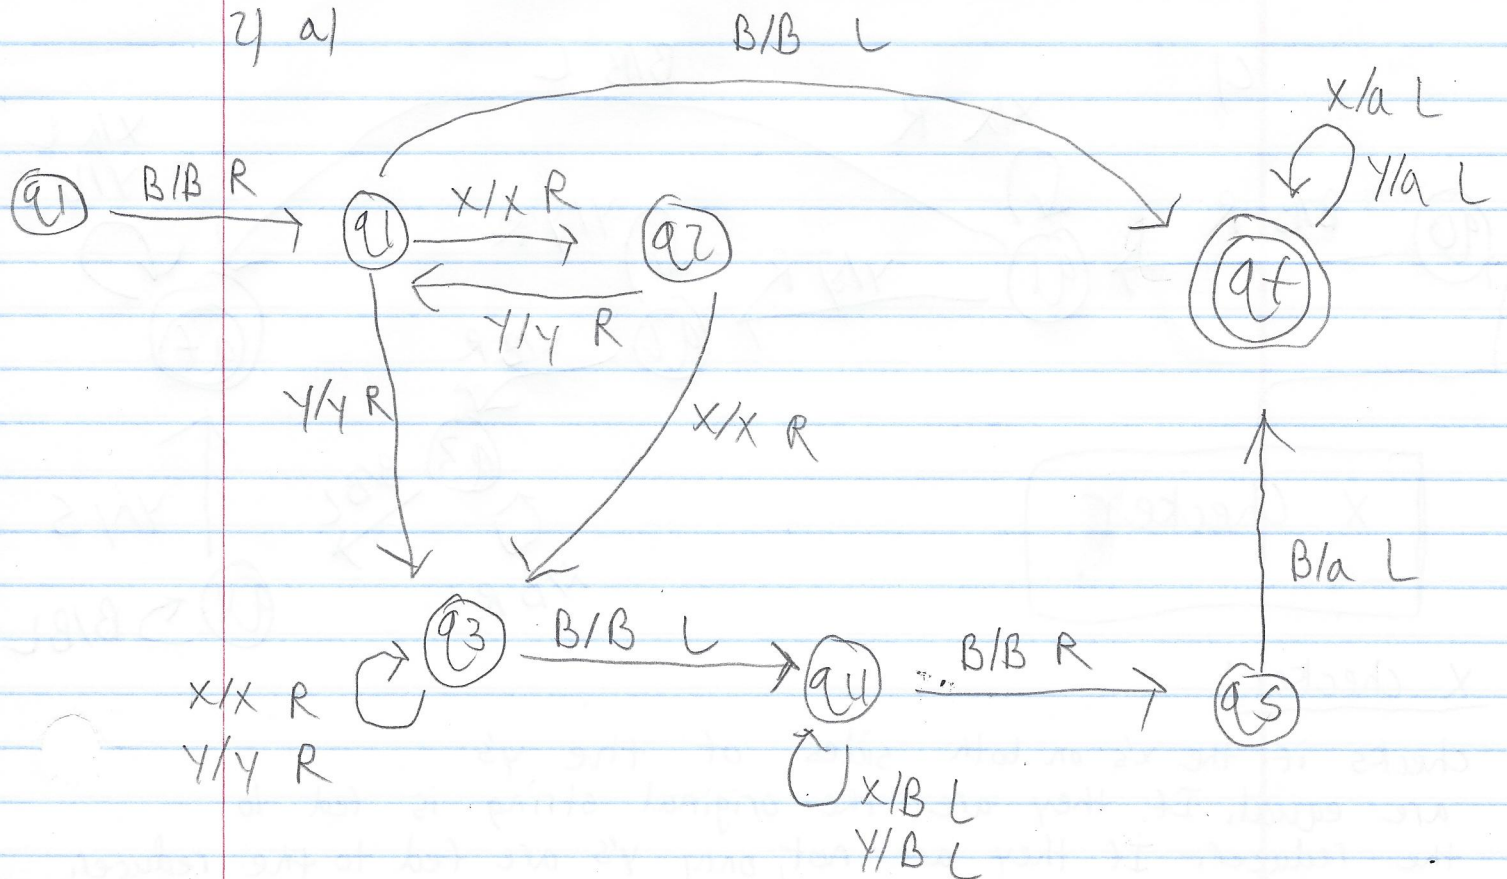 2) a)
B/B L
X/a L
Y/a L
q1
B/B R
q1
X/X R
q2
Y/Y R
qf
Y/Y R
X/X R
B/a L
q3
B/B L
q4
B/B R
q5
X/X R
Y/Y R
X/B L
Y/B L